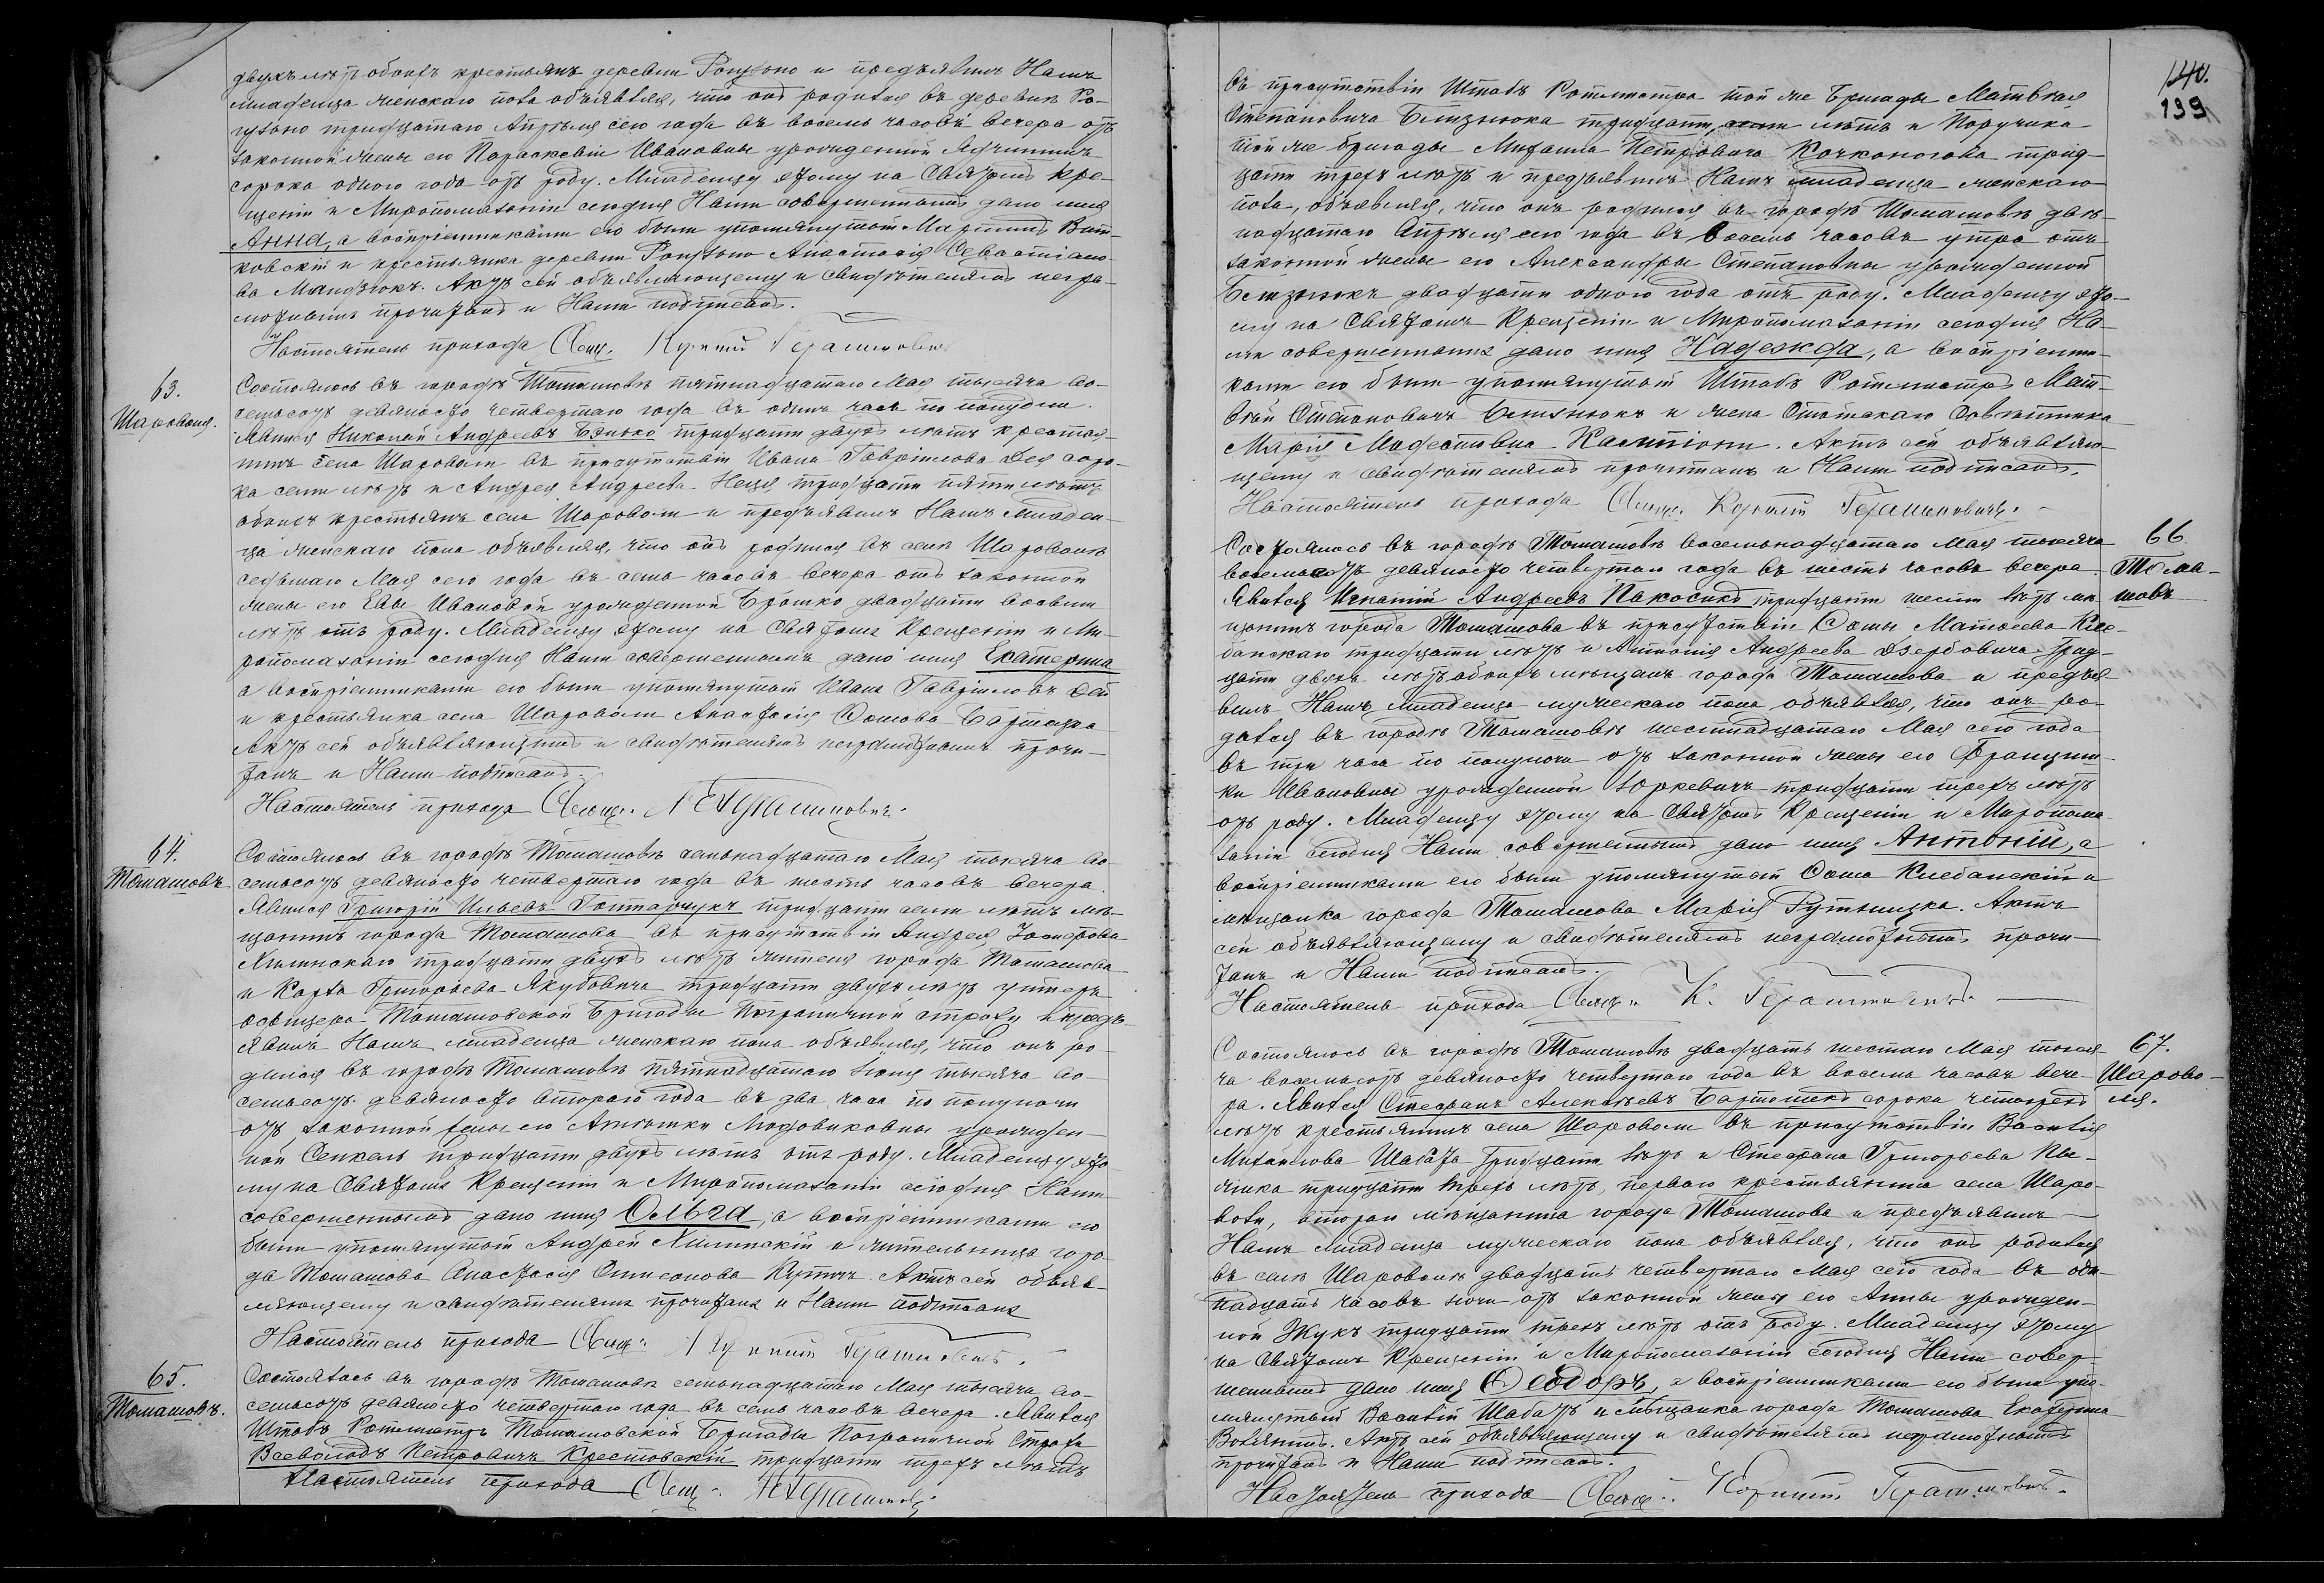 двухъ лѣтъ обоихъ крестьянъ деревни и предъявилъ Намъ
младенца женскаго пола объявляя, что онъ родился въ деревнѣ Ро-
гузьно тридцатаго Апрѣля сего года въ восемь часовъ вечера отъ
законной жены его Параскевіи Ивановны урожденной
сорока одного года отъ роду. Младенцу этому на Святомъ Кре-
щеніи и Миропомазаніи сегодня Нами совершенномъ дано имя
Анна, а воспріемниками его были упомянутый Мартинъ Вит-
ковскій и крестьянка деревни Анастасія Севастіано-
ва Мандзюкъ. Актъ сей объявляющему и свидѣтелямъ негра-
мотнымъ прочитанъ и Нами подписанъ.
Настоятель прихода Свящ. Корнилій Герашкевичъ
63.
Шароволя.
Состоялось въ городѣ Томашовѣ пятнадцатаго Мая тысяча во-
семьсотъ девяносто четвертаго года въ одинъ часъ по полудни.
Явился Николай Андреевъ Бэнько тридцати двухъ лѣтъ крестья-
нинъ села Шароволи въ присутствіи Ивана Гаврилова Дея соро-
ка семи лѣтъ и Андрея Андреева тридцати пяти лѣтъ
обоихъ крестьянъ села Шароволи и предъявилъ Намъ младен-
ца женскаго пола объявляя, что онъ родился въ селѣ Шароволѣ
седьмаго Мая сего года въ семь часовъ вечера отъ законной
жены его Евы Ивановой урожденной Брошко двадцати восьми
лѣтъ отъ роду. Младенцу этому на Святомъ Крещеніи и Ми-
ропомазаніи сегодня Нами совершенномъ дано имя Екатерина
а воспріемниками его были упомянутый Иванъ Гавриловъ Дей
и крестьянка села Шароволи Анастасія Фомова
Актъ сей объявляющимъ и свидѣтелямъ неграмотнымъ прочи-
танъ и Нами подписанъ.
Настоятель прихода Свящ. К Герашкевичъ.
64.
Томашовъ.
Состоялось въ городѣ Томашовѣ семнадцатаго Мая тысяча во-
семьсотъ девяносто четвертаго года въ шесть часовъ вечера.
Явился Григорій Ильевъ Гонтарчукъ тридцати семи лѣтъ мѣ-
щанинъ города Томашова въ присутствіи Андрея Іосифова
Хилинскаго тридцати двухъ лѣтъ жителя города Томашова
и Карла Григорьева Якубовича тридцати двухъ лѣтъ унтеръ
офицера Томашовской Бригады Пограничной стражи и предъ-
явилъ Намъ младенца женскаго пола объявляя, что онъ ро-
дился въ городѣ Томашовѣ пятнадцатаго Іюня тысяча во-
семьсотъ девяносто втораго года въ два часа по полуночи
отъ законной жены его Людовиковны урожден-
ной тридцати двухъ лѣтъ отъ роду. Младенцу это-
му на Святомъ Крещеніи и Миропомазаніи сегодня Нами
совершенномъ дано имя Ольга, а воспріемниками его
были упомянутый Андрей Хилинскій и жительница горо-
да Томашова Анастасія Симеонова Актъ сей объяв-
ляющему и свидѣтелямъ прочитанъ и Нами подписанъ
Настоятель прихода Свящ. Корнилій Герашкевичъ.
65.
Томашовъ.
Состоялось въ городѣ Томашовѣ семнадцатаго Мая тысяча во-
семьсотъ девяносто четвертаго года въ семь часовъ вечера. Явился
Штабъ Ротмистръ Томашовской Бригады Пограничной Стражи
Всеволодъ Петровичъ Крестовскій тридцати трехъ лѣтъ
Настоятель прихода Свящ. К Герашкевичъ
140.
139
въ присутствіи Штабъ Ротмистра той же Бригады Матвѣя
Степановича Близнюка тридцати лѣтъ и Поручика
той же бригады Михаила Петровича трид-
цати трехъ лѣтъ и предъявилъ Намъ младенца женскаго
пола, объявляя, что онъ родился въ городѣ Томашовѣ двѣ-
надцатаго Апрѣля сего года въ восемь часовъ утра отъ
законной жены его Александры Степановны урожденной
Близнюкъ двадцати одного года отъ роду. Младенцу это-
му на Святомъ Крещеніи и Миропомазаніи сегодня На-
ми совершенномъ дано имя Надежда, а воспріемни-
ками его были упомянутый Штабъ Ротмистръ Мат-
вѣй Степановичъ Близнюкъ и жена Статскаго Совѣтника
Марія Модестовна Актъ сей объявляю-
щему и свидѣтелямъ прочитанъ и Нами подписанъ.
Настоятель прихода Свящ. Корнилій Герашкевичъ.
66
Тома-
шовъ
Состоялось въ городѣ Томашовѣ восемнадцатаго Мая тысяча
восемьсотъ девяносто четвертаго года въ шесть часовъ вечера.
Явился Игнатій Андреевъ Пакосикъ тридцати шести лѣтъ мѣ-
щанинъ города Томашова въ присутствіи Фомы Матвеева Кле-
банскаго тридцати лѣтъ и Антонія Андреева трид-
цати двухъ лѣтъ обоихъ мѣщанъ города Томашова и предъя-
вилъ Намъ младенца мужескаго пола объявляя, что онъ ро-
дился въ городѣ Томашовѣ шестнадцатаго Мая сего года
въ три часа по полуночи отъ законной жены его Францис-
ки Ивановны урожденной Юркевичъ тридцати трехъ лѣтъ
отъ роду. Младенцу этому на Святомъ Крещеніи и Миропома-
заніи сегодня Нами совершенномъ дано имя Антоній, а
воспріемниками его были упомянутый Фома Клебанскій и
мѣщанка города Томашова Марія Актъ
сей объявляющему и свидѣтелямъ неграмотнымъ прочи-
танъ и Нами подписанъ.
Настоятель прихода Свящ. К. Герашкевичъ.
67.
Шарово-
ля.
Состоялось въ городѣ Томашовѣ двадцать шестаго Мая тыся-
ча восемьсотъ девяносто четвертаго года въ восемь часовъ вече-
ра. Явился Стефанъ Алексѣевъ Бартошекъ сорока четырехъ
лѣтъ крестьянинъ села Шароволи въ присутствіи Василія
Михайлова Шабатъ тридцати лѣтъ и Стефана Григорьева
тридцати трехъ лѣтъ, перваго крестьянина села Шаро-
воли, втораго мѣщанина города Томашова и предъявилъ
Намъ младенца мужескаго пола объявляя, что онъ родился
въ селѣ Шароволѣ двадцать четвертаго Мая сего года въ оди-
надцать часовъ ночи отъ законной жены его Анны урожден-
ной Жукъ тридцати трехъ лѣтъ отъ роду. Младенцу этому
на Святомъ Крещеніи и Миропомазаніи сегодня Нами совер-
шенномъ дано имя Ѳеодоръ, а воспріемниками его были упо-
мянутый Василій Шабатъ и мѣщанка города Томашова Екатерина
Актъ сей объявляющему и свидѣтелямъ неграмотнымъ
прочитанъ и Нами подписанъ.
Настоятель прихода Свящ. Корнилій Герашкевичъ.